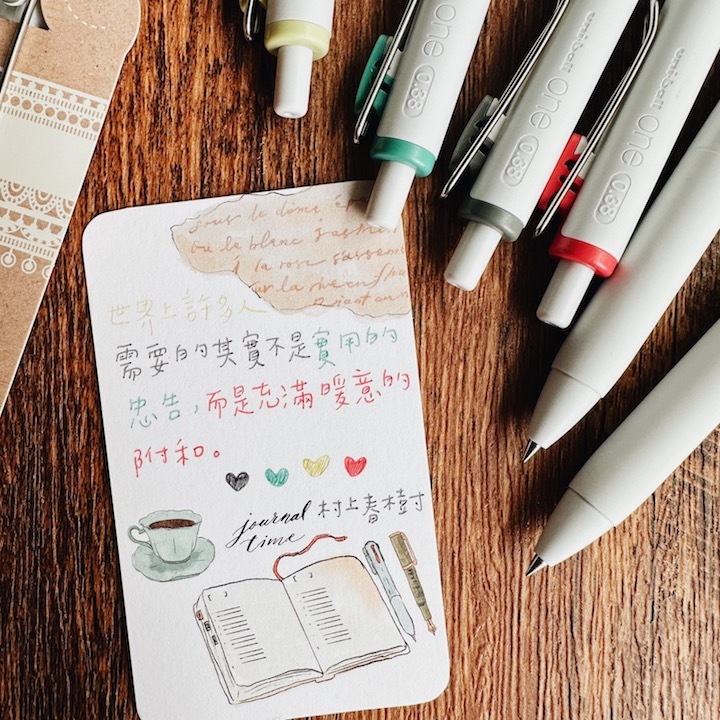 one 0.38
uniball one 0.38
uniball one 0.38
sous le dôme
ou le blanc jasmin
à la rose s'assemble
sur la rive en
世界上許多人
需要的其實不是實用的
忠告,而是充滿暖意的
附和。
journal
time
村上春樹